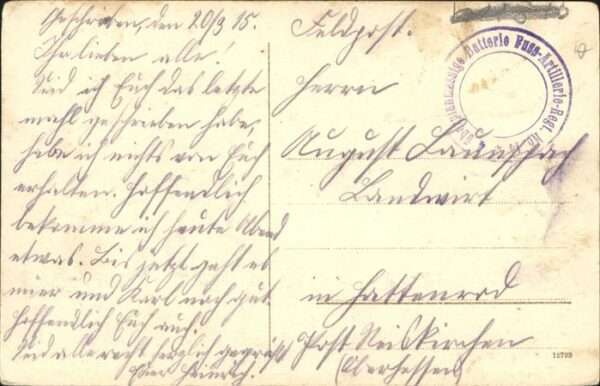 Geschrieben, den 20/9 15.
Ihr lieben alle!
Seid ich Euch das letzte
mahl geschrieben habe,
habe ich nichts von Euch
erhalten. Hoffendlich
bekomme ich heute Abend
etwas. Bis jetzt geht es
mier und Karl noch gut
hoffendlich Euch auch.
Seid alle recht herzlich gegrüßt
Euer Heinrich.
Feldpost.
Herrn
August
Landwirt
in Hattenrod
Post Reiskirchen
(Oberhessen)
Batterie Fuss-Artillerie-Regt. No.